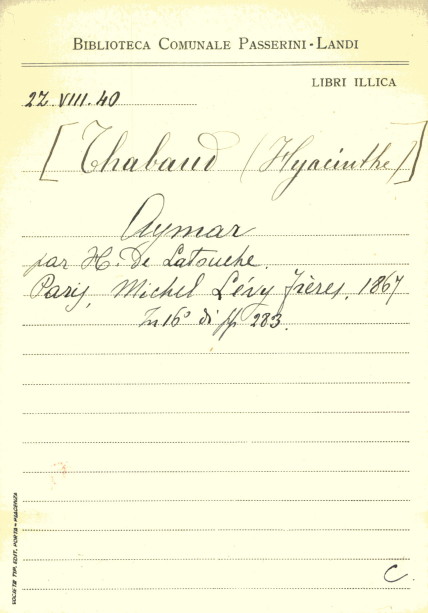 BIBLIOTECA COMUNALE PASSERINI-LANDI
LIBRI ILLICA
22.VIII.40
[Thabaud (Hyacinthe)]
Aymar
par H. De Latouche.
Paris, Michel Lévy Frères, 1867
In 16° di pp 283.
C.
SOCIETÀ TIP. EDIT. PORTA - PIACENZA